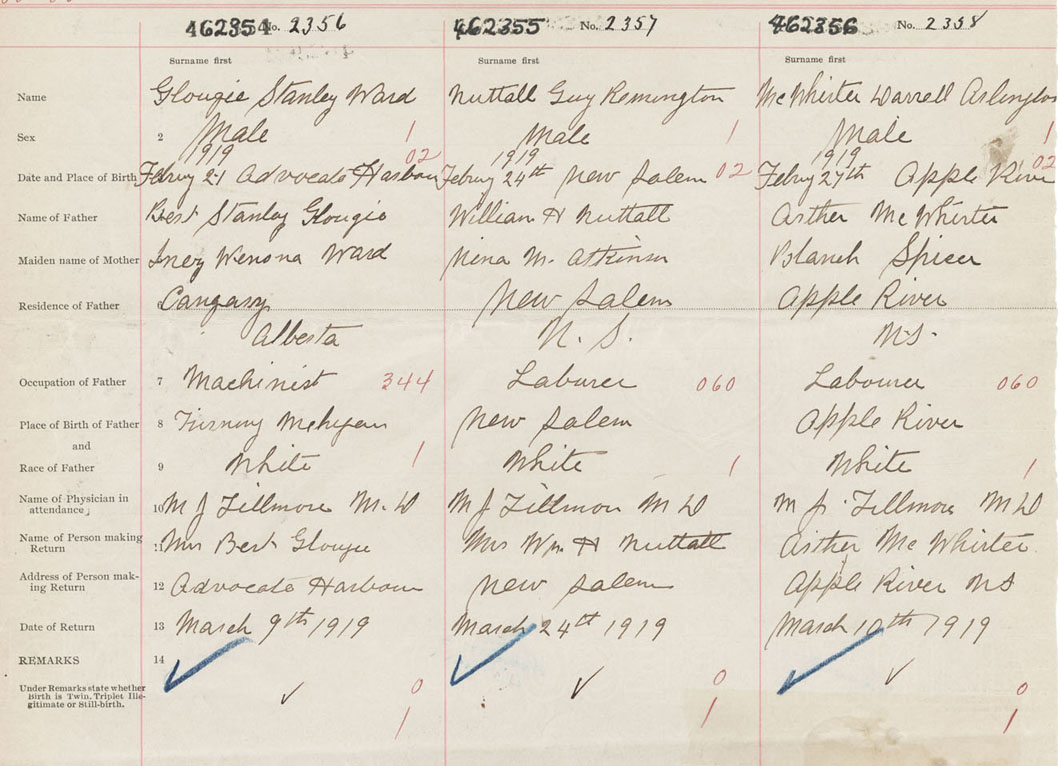 462354 No. 2356 462355 No. 2357 462356 No. 2358
Surname first Surname first Surname first
Name Glougie Stanley Ward Nuttall Guy Remington McWhirter Darrell Arlington
Sex 2 Male 1 Male 1 Male 1
1919 02 1919 1919 02
Date and Place of Birth Febury 21 Advocate Harbour Febury 24th New Salem 02 Febury 27th Apple River
Name of Father Bert Stanley Glougie William H Nuttall Arther McWhirter
Maiden name of Mother Inez Wenona Ward Nina M. Atkinson Blanch Spicer
Residence of Father 6 Cangary New Salem Apple River
Alberta N. S. N.S.
Occupation of Father 7 Machinist 344 Laburer 060 Labourer 060
Place of Birth of Father 8 New Salem Apple River
and
Race of Father 9 White 1 White 1 White 1
Name of Physician in
attendance 10 M J Fillmore M. D M J Fillmore M D M J. Fillmore M D
Name of Person making
Return 11 Mrs Bert Glougie Mrs Wm H Nuttall Arther McWhirter
Address of Person mak-
ing Return 12 Advocate Harbour New Salem Apple River N S
Date of Return 13 March 9th 1919 March 24th 1919 March 10th 1919
REMARKS 14
Under Remarks state whether
Birth is Twin, Triplet Ille-
gitimate or Still-birth.
0 0 0
1 1 1